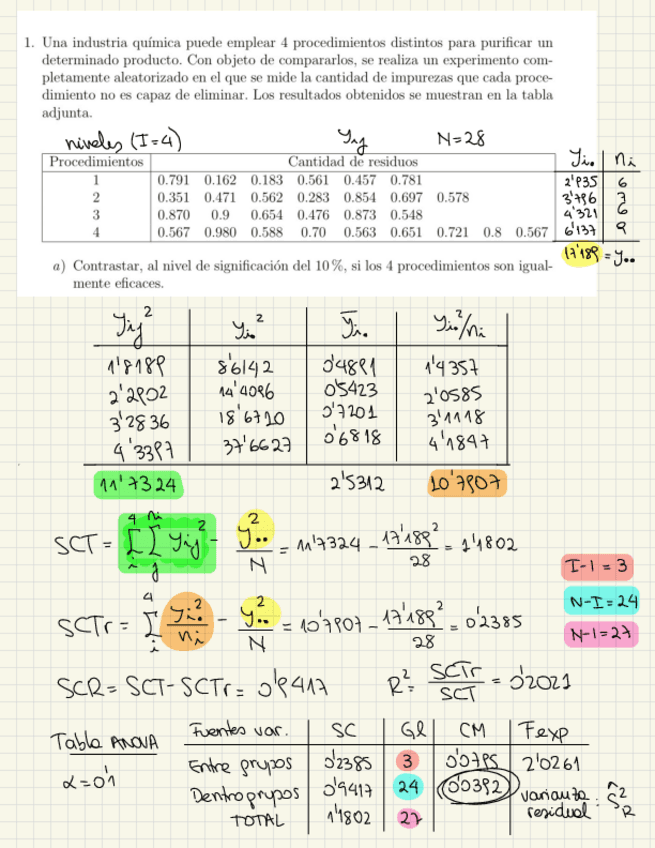 1. Una industria química puede emplear 4 procedimientos distintos para purificar un
determinado producto. Con objeto de compararlos, se realiza un experimento com-
pletamente aleatorizado en el que se mide la cantidad de impurezas que cada proce-
dimiento no es capaz de eliminar. Los resultados obtenidos se muestran en la tabla
adjunta.
niveles (I=4) yij N=28
Procedimientos Cantidad de residuos yi. ni
1 0.791 0.162 0.183 0.561 0.457 0.781 2'935 6
2 0.351 0.471 0.562 0.283 0.854 0.697 0.578 3'796 7
3 0.870 0.9 0.654 0.476 0.873 0.548 4'321 6
4 0.567 0.980 0.588 0.70 0.563 0.651 0.721 0.8 0.567 6'137 9
17'189 = y..
a) Contrastar, al nivel de significación del 10 %, si los 4 procedimientos son igual-
mente eficaces.
yij² yi.² ȳi. yi.²/ni
1'8189 8'6142 0'4891 1'4357
2'2902 14'4096 0'5423 2'0585
3'2836 18'6710 0'7201 3'1118
4'3397 37'6627 0'6818 4'1847
11'7324 2'5312 10'7907
SCT = Σi⁴ Σjⁿⁱ yij² - y..²/N = 11'7324 - 17'189²/28 = 1'1802
I-1 = 3
N-I = 24
SCTr = Σi⁴ yi.²/ni - y..²/N = 10'7907 - 17'189²/28 = 0'2385
N-1 = 27
SCR = SCT - SCTr = 0'9417 R² = SCTr/SCT = 0'2021
Tabla ANOVA Fuentes var. SC Gl CM Fexp
α = 0'1 Entre grupos 0'2385 3 0'0795 2'0261
Dentro grupos 0'9417 24 0'0392 varianza residual : ŝ²R
TOTAL 1'1802 27